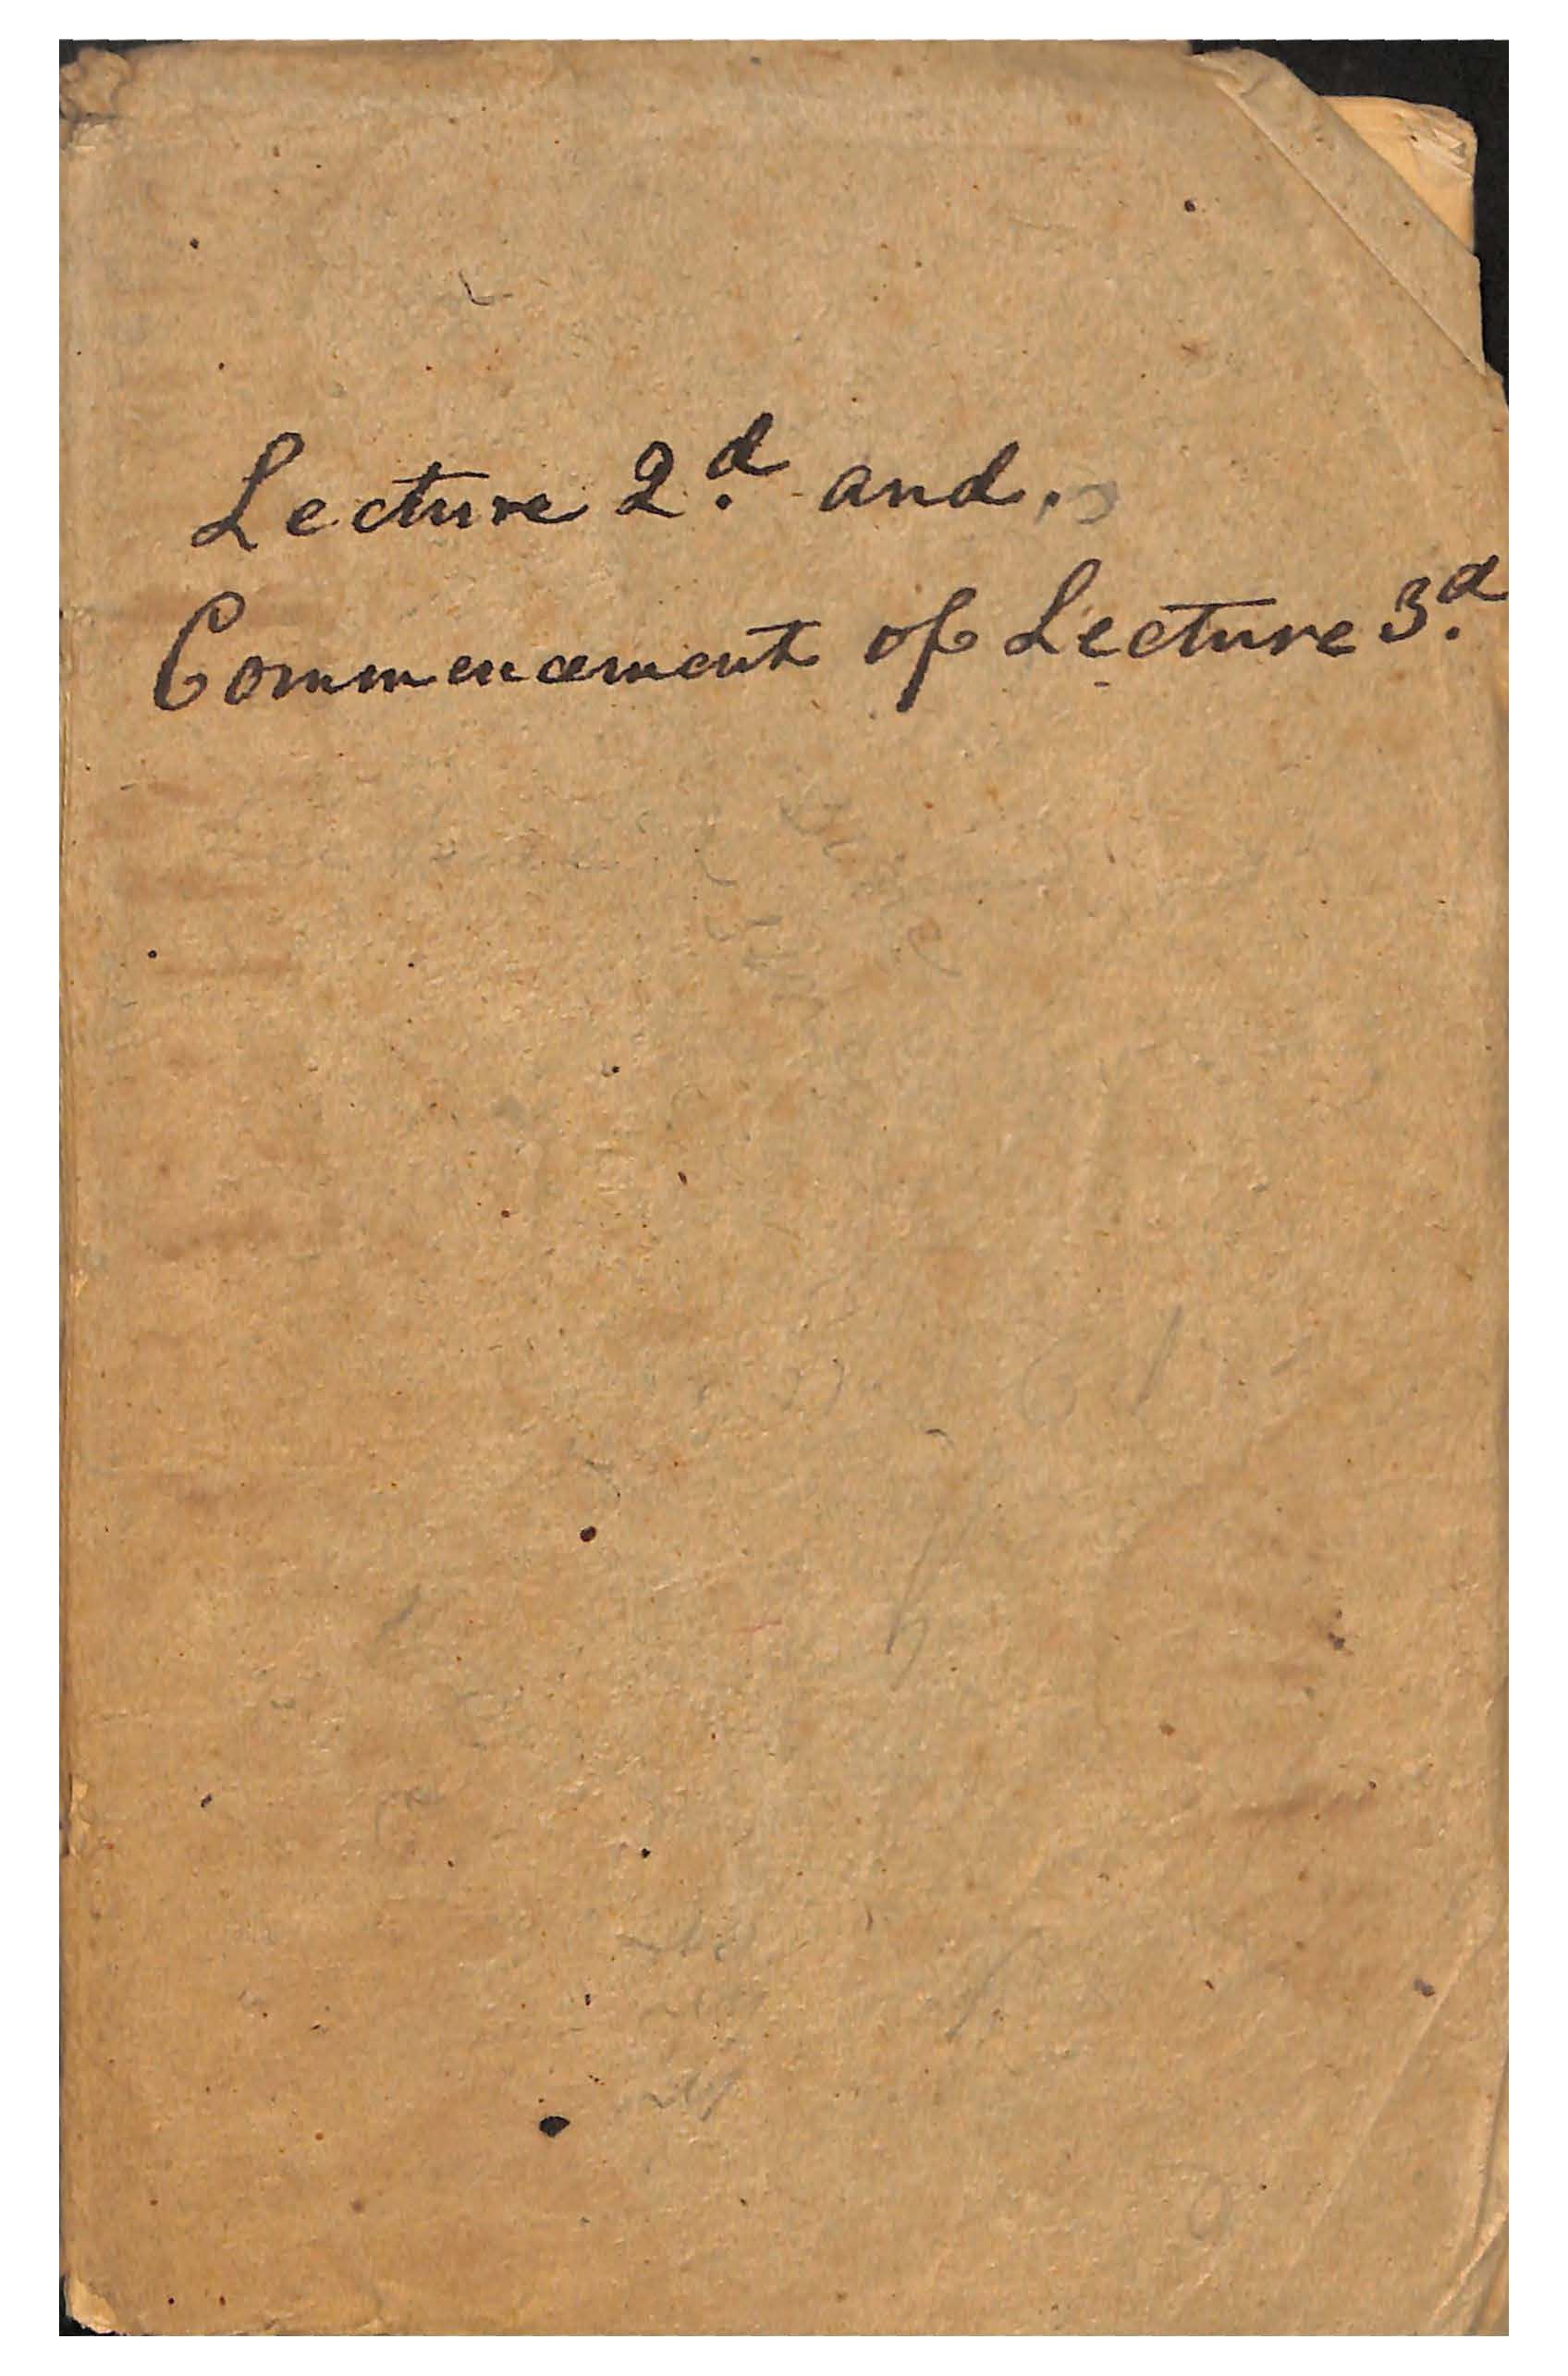 Lecture 2.d and.
Commencement of Lecture 3.d